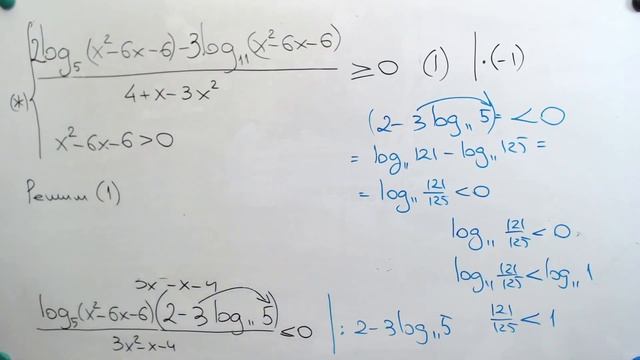 (*) { (2log₅(x²-6x-6)-3log₁₁(x²-6x-6))/(4+x-3x²) ≥ 0 (1) | ·(-1)
x²-6x-6>0
Решим (1)
(2-3log₁₁5)= <0
= log₁₁121-log₁₁125 =
= log₁₁ 121/125 <0
log₁₁ 121/125 <0
log₁₁ 121/125 < log₁₁1
121/125 <1
3x²-x-4
(log₅(x²-6x-6)(2-3log₁₁5))/(3x²-x-4) ≤0 | : 2-3log₁₁5